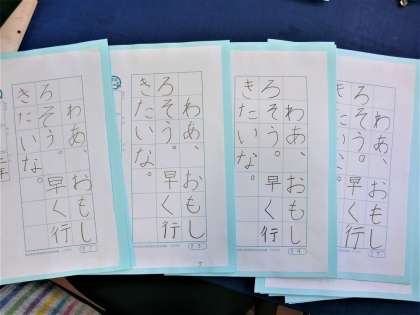 わあ、おもし
ろそう。早く行
きたいな。
わあ、おもし
ろそう。早く行
きたいな。
わあ、おもし
ろそう。早く行
きたいな。
わあ、おもし
ろそう。早く行
きたいな。